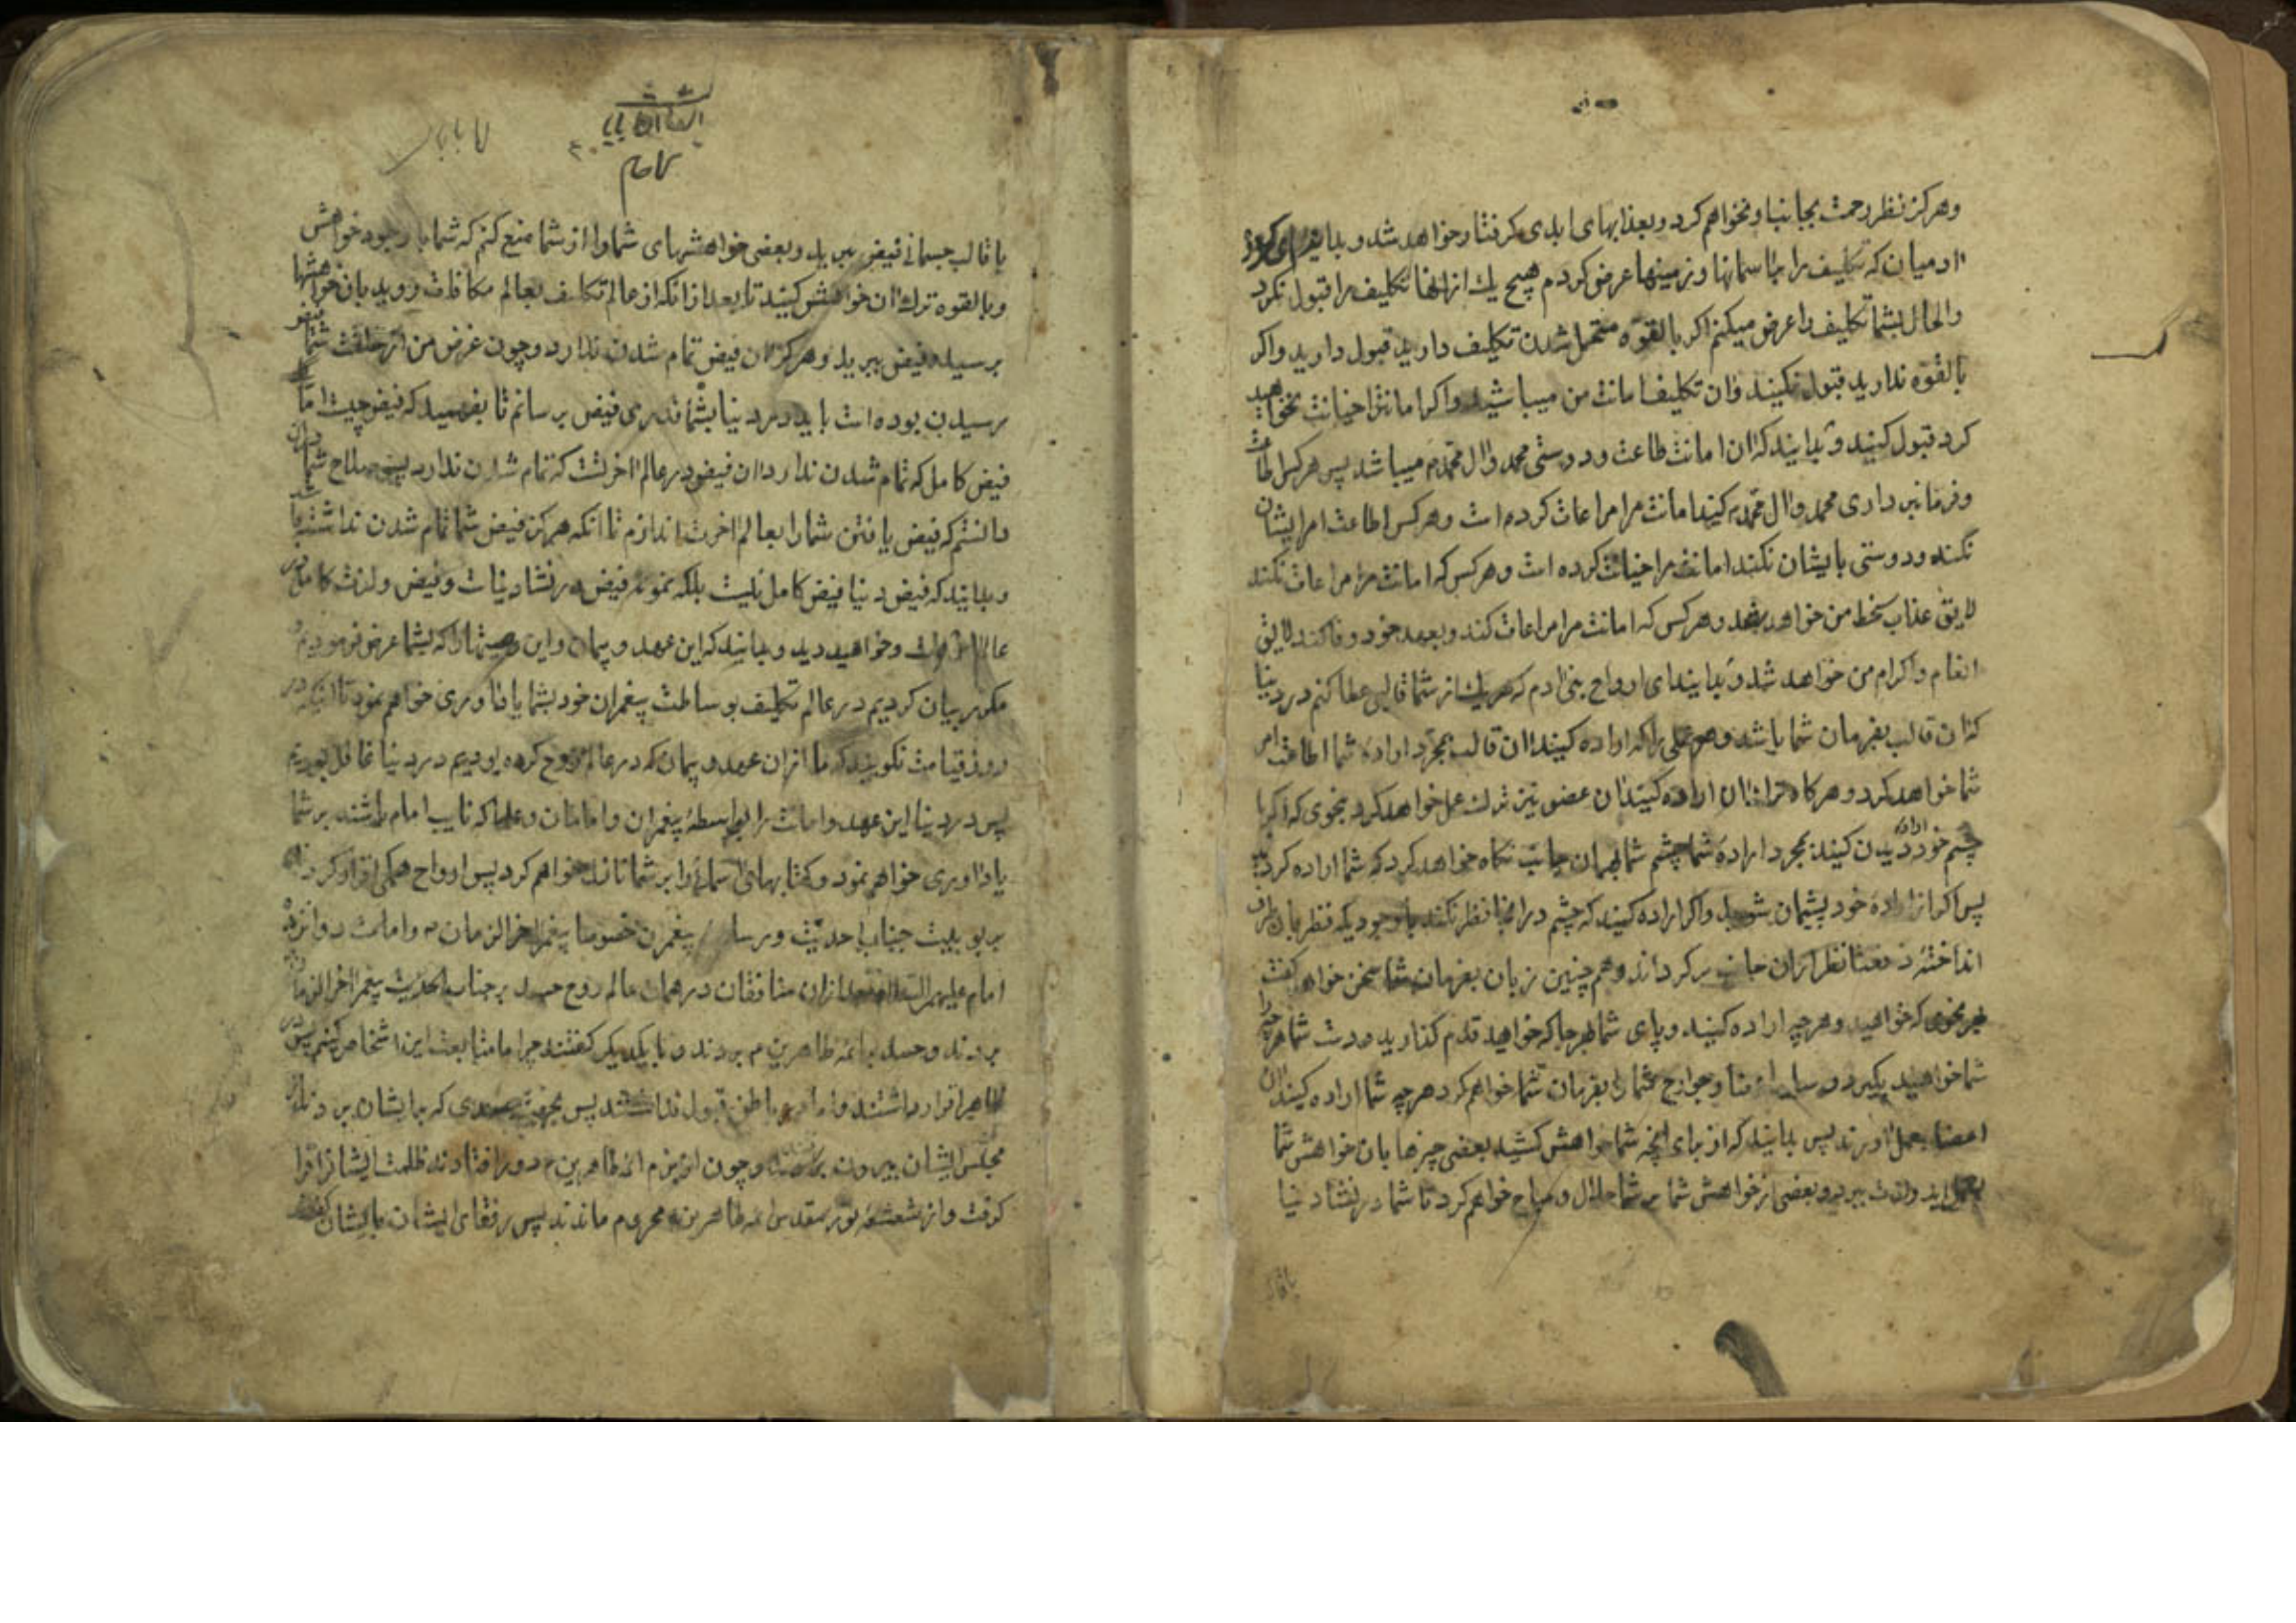 وهرکز نظر رحمت بجانب او نخواهم کرد و بعذابهای ابدی کرفتار خواهد شد و بدانید ای کروه
ادمیان که تکلیف را باسمانها و زمینها عرض کردم هیچ یك از انها تکلیف را قبول نکرد
والحال بشما تکلیف را عرض میکنم اکر بالقوه متحمل شدن تکلیف دارید قبول دارید واکر
بالقوه ندارید قبول نکنید وان تکلیف امانت من میباشد واکر امانترا خیانت نخواهید
کرد قبول کنید و بدانید که ان امانت طاعت و دوستی محمد وال محمد میباشد پس هر کس اطاعت
وفرمانبرداری محمد وال محمد کند امانت مرا مراعات کرده است وهر کس اطاعت امر ایشان
نکند ودوستی بایشان نکند امانت مرا خیانت کرده است وهر کس که امانت مرا مراعات نکند
لایق عذاب سخط من خواهد شد وهر کس که امانت مرا مراعات کند وبعهد خود وفا کند لایق
انعام واکرام من خواهد شد و بدانید ای ارواح بنی ادم که هر یك از شما قالبی عطا کنم در دنیا
که ان قالب بفرمان شما باشد وهر عملی را که اراده کنید ان قالب بمجرد اراده شما اطاعت امر
شما خواهد کرد وهر کاه ترك ان اراده کنید ان عضو نیز ترك عمل خواهد کرد بنحوی که اکر با
چشم خود اراده دیدن کنید بمجرد اراده شما چشم شما بهمان جانب نکاه خواهد کرد که شما اراده کردید
پس اکر از اراده خود پشیمان شوید واکر اراده کنید که چشم در انجا نظر نکند باوجودیکه نظر بان طرف
انداخته دفعتا نظر از ان جانب بر کرداند وهم چنین زبان بفرمان شما سخن خواهد کفت
بهر نحوی که خواهید وهر چه اراده کنید وپای شما بهر جا که خواهید قدم کذارید ودست شما هر چه را
شما خواهید بکیرد وسایر اعضا وجوارح شما را بفرمان شما خواهم کرد هر چه شما اراده کنید ان
اعضا بعمل اورند پس بدانید که از برای انچه شما خواهش کنید بعضی چیزها بان خواهش شما
بعمل اید ولذت ببرید وبعضی از خواهش شما بر شما حلال ومباح خواهم کرد تا شما در نشاء دنیا
باقا
باقالب جسمانی فیض ببرید وبعضی خواهشهای شما را از شما منع کنم که شما با وجود خواهش
وبالقوه ترك ان خواهش کنید تا بعد از انکه از عالم تکلیف بعالم مکافات روید بان خواهشها
برسید وفیض ببرید وهرکز ان فیض تمام شدن ندارد وچون غرض من از خلقت شما بفیض
رسیدن بوده است باید در دنیا بشما قدری فیض برسانم تا بفهمید که فیض چیست اما
فیض کامل که تمام شدن ندارد ان فیض در عالم اخرتست که تمام شدن ندارد پس صلاح شما دران
دانستم که فیض یافتن شما را بعالم اخرت اندازم تا انکه هرکز فیض شما تمام شدن نداشته باشد
وبدانید که فیض دنیا فیض کامل نیست بلکه نمونه فیض در نشاء دنیاست وفیض ولذت کامل در
عالم اخرت است وخواهید دید وبدانید که این عهد وپیمان واین وصیتها را که بشما عرض فرمودیم و
مکرر بیان کردیم در عالم تکلیف بوساطت پیغمران خود بشما یاداوری خواهم نمود تا اینکه در
روز قیامت نکویید که ما از ان عهد و پیمان که در عالم روح کرده بودیم در دنیا غافل بودیم
پس در دنیا این عهد وامانت را بواسطه پیغمران وامامان وعلما که نایب امام باشند بر شما
یاداوری خواهم نمود وکتابهای اسمانی را بر شما نازل خواهم کرد پس ارواح همکی اقرار کردند
بربوبیت جناب احدیت ورسالت پیغمرن خصوصا پیغمر اخر الزمان ص وامامت دوازده
امام علیهم السلام بعد از ان منافقان در همان عالم روح حسد بر جناب احدیت پیغمر اخر الزمان
بردند وحسد بر ائمه طاهرین م بردند وبا یکدیکر کفتند چرا ما متابعت این اشخاص کنیم پس در
ظاهر اقرار داشتند واما در باطن قبول نداشتند پس بجهت حسدی که بایشان بردند از
مجلس ایشان بیرون رفتند وچون از بزم ائمه طاهرین م دور افتادند ظلمت ایشانرا فرا
کرفت واز شعشعه نور مقدس ائمه طاهرین محروم ماندند پس رفقای ایشان بایشان کفتند